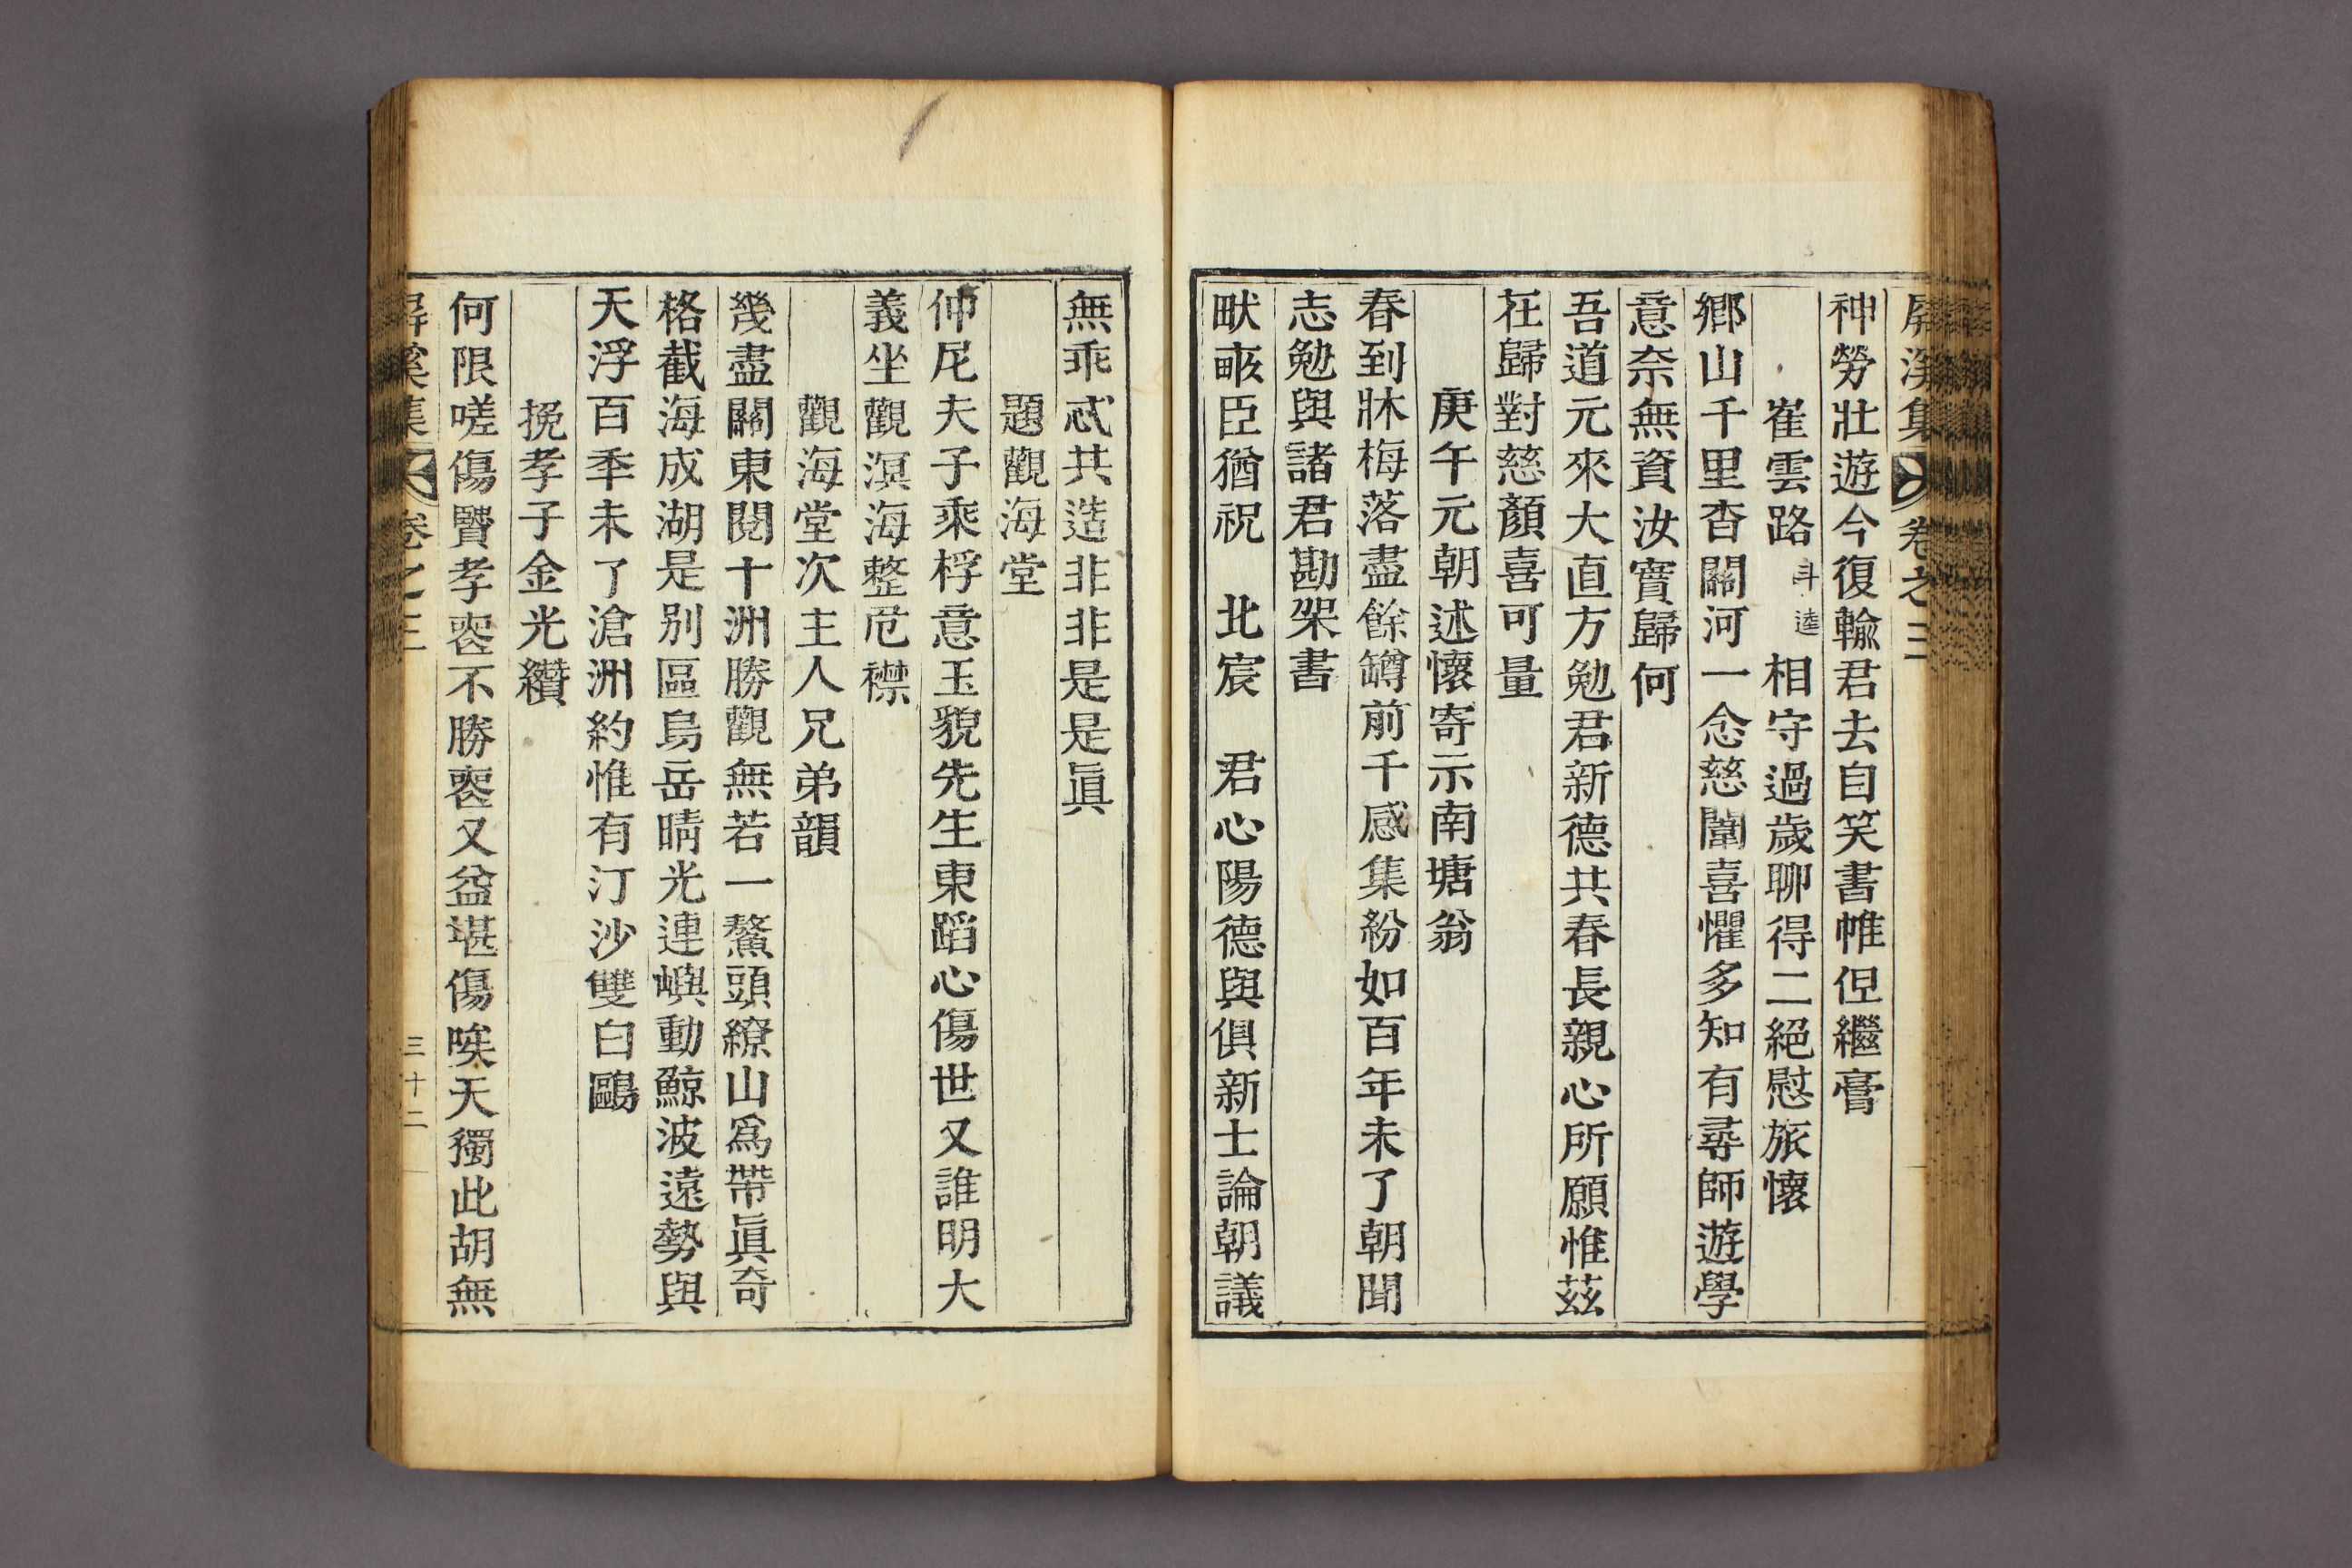 屏溪集 卷之三
神勞壯遊今復輸君去自笑書帷但繼膏
崔雲路斗逵相守過歲聊得二絕慰旅懷
鄉山千里杳關河一念慈闈喜懼多知有尋師遊學
意奈無資汝實歸何
吾道元來大直方勉君新德共春長親心所願惟茲
在歸對慈顏喜可量
庚午元朝述懷寄示南塘翁
春到牀梅落盡餘罇前千感集紛如百年未了朝聞
志勉與諸君勘架書
畎畝臣猶祝 北宸 君心陽德與俱新士論朝議
無乖忒共造非非是是眞
題觀海堂
仲尼夫子乘桴意玉貌先生東蹈心傷世又誰明大
義坐觀溟海整危襟
觀海堂次主人兄弟韻
幾盡關東閱十洲勝觀無若一鰲頭繚山爲帶眞奇
格截海成湖是别區島岳晴光連嶼動鯨波遠勢與
天浮百年未了滄洲約惟有汀沙雙白鷗
挽孝子金光纘
何限嗟傷贒孝喪不勝喪又益堪傷唉天獨此胡無
屏溪集 卷之三 三十二